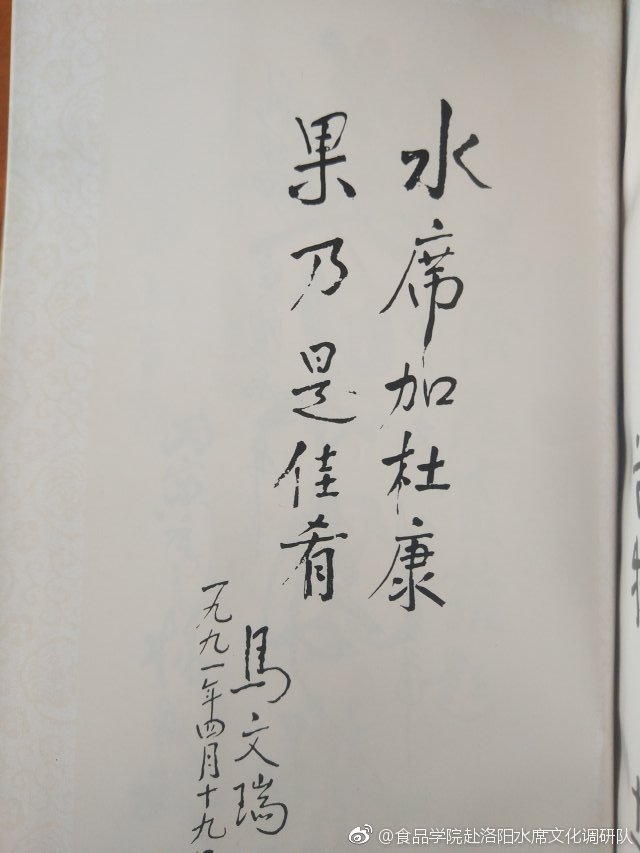 水席加杜康
果乃是佳肴
馬文瑞
一九九一年四月十九
@食品学院赴洛阳水席文化调研队